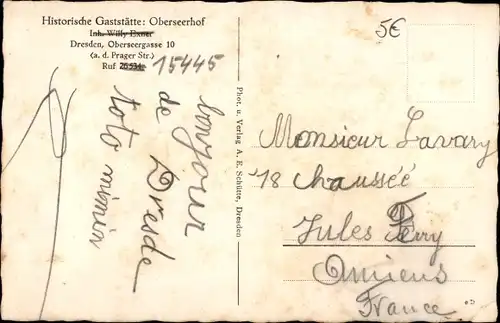 Historische Gaststätte: Oberseerhof
Inh. Willy Exner
Dresden, Oberseergasse 10
(a. d. Prager Str.)
Ruf 26534 15445
bonjour
de Dresde
toto mimin
Phot. u. Verlag A. E. Schütte, Dresden
5€
Monsieur Lavary
78 Chaussée
Jules Ferry
Amiens
France